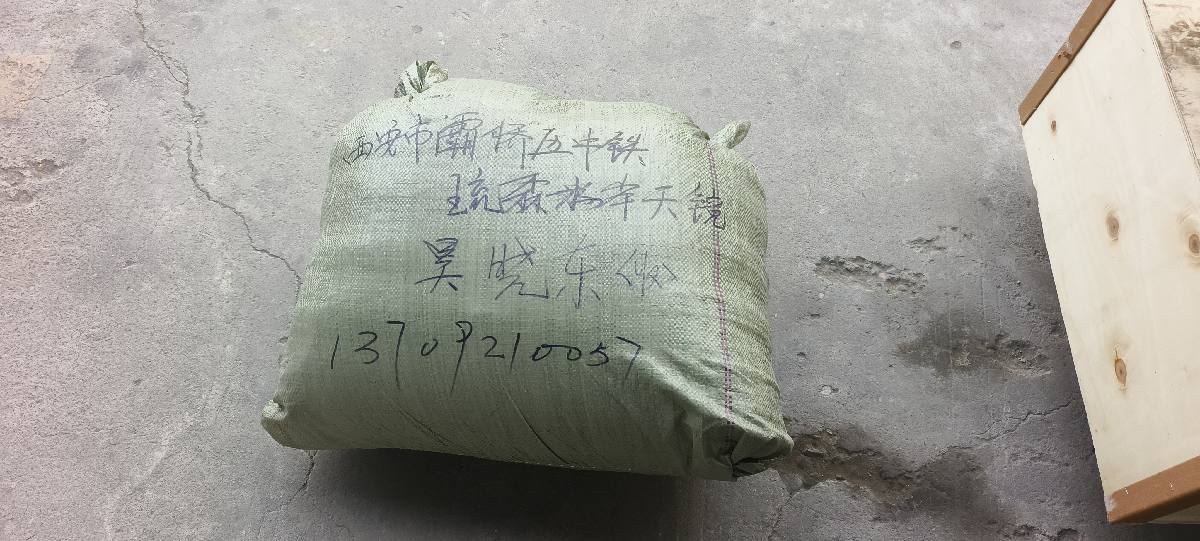 西安市灞桥区牛铁
琉森水岸天镜
吴晓东(收)
13709210057